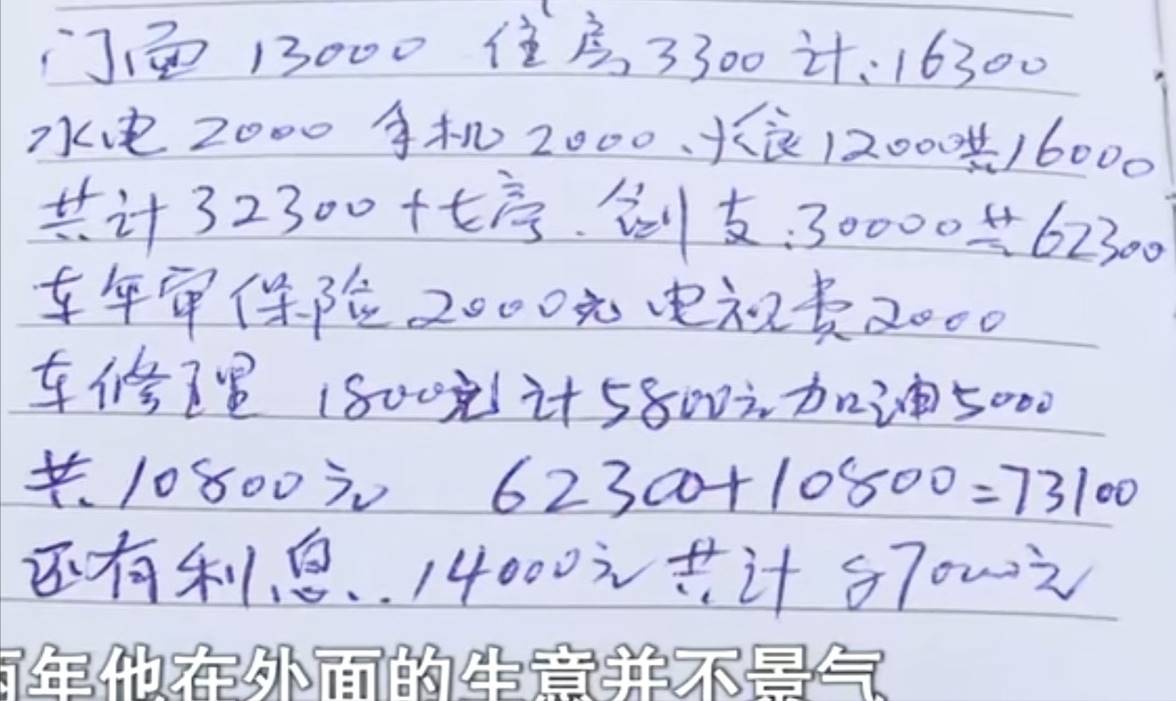 门面 13000 住房 3300 计:16300
水电 2000 手机 2000、伙食 12000共16000
共计32300+七, 支:30000共62300
车年审保险 2000元 电视费2000
车修理 1800 计5800元加油5000
共10800元 62300+10800=73100
还有利息..14000元共计 87000元
年他在外面的生意并不景气